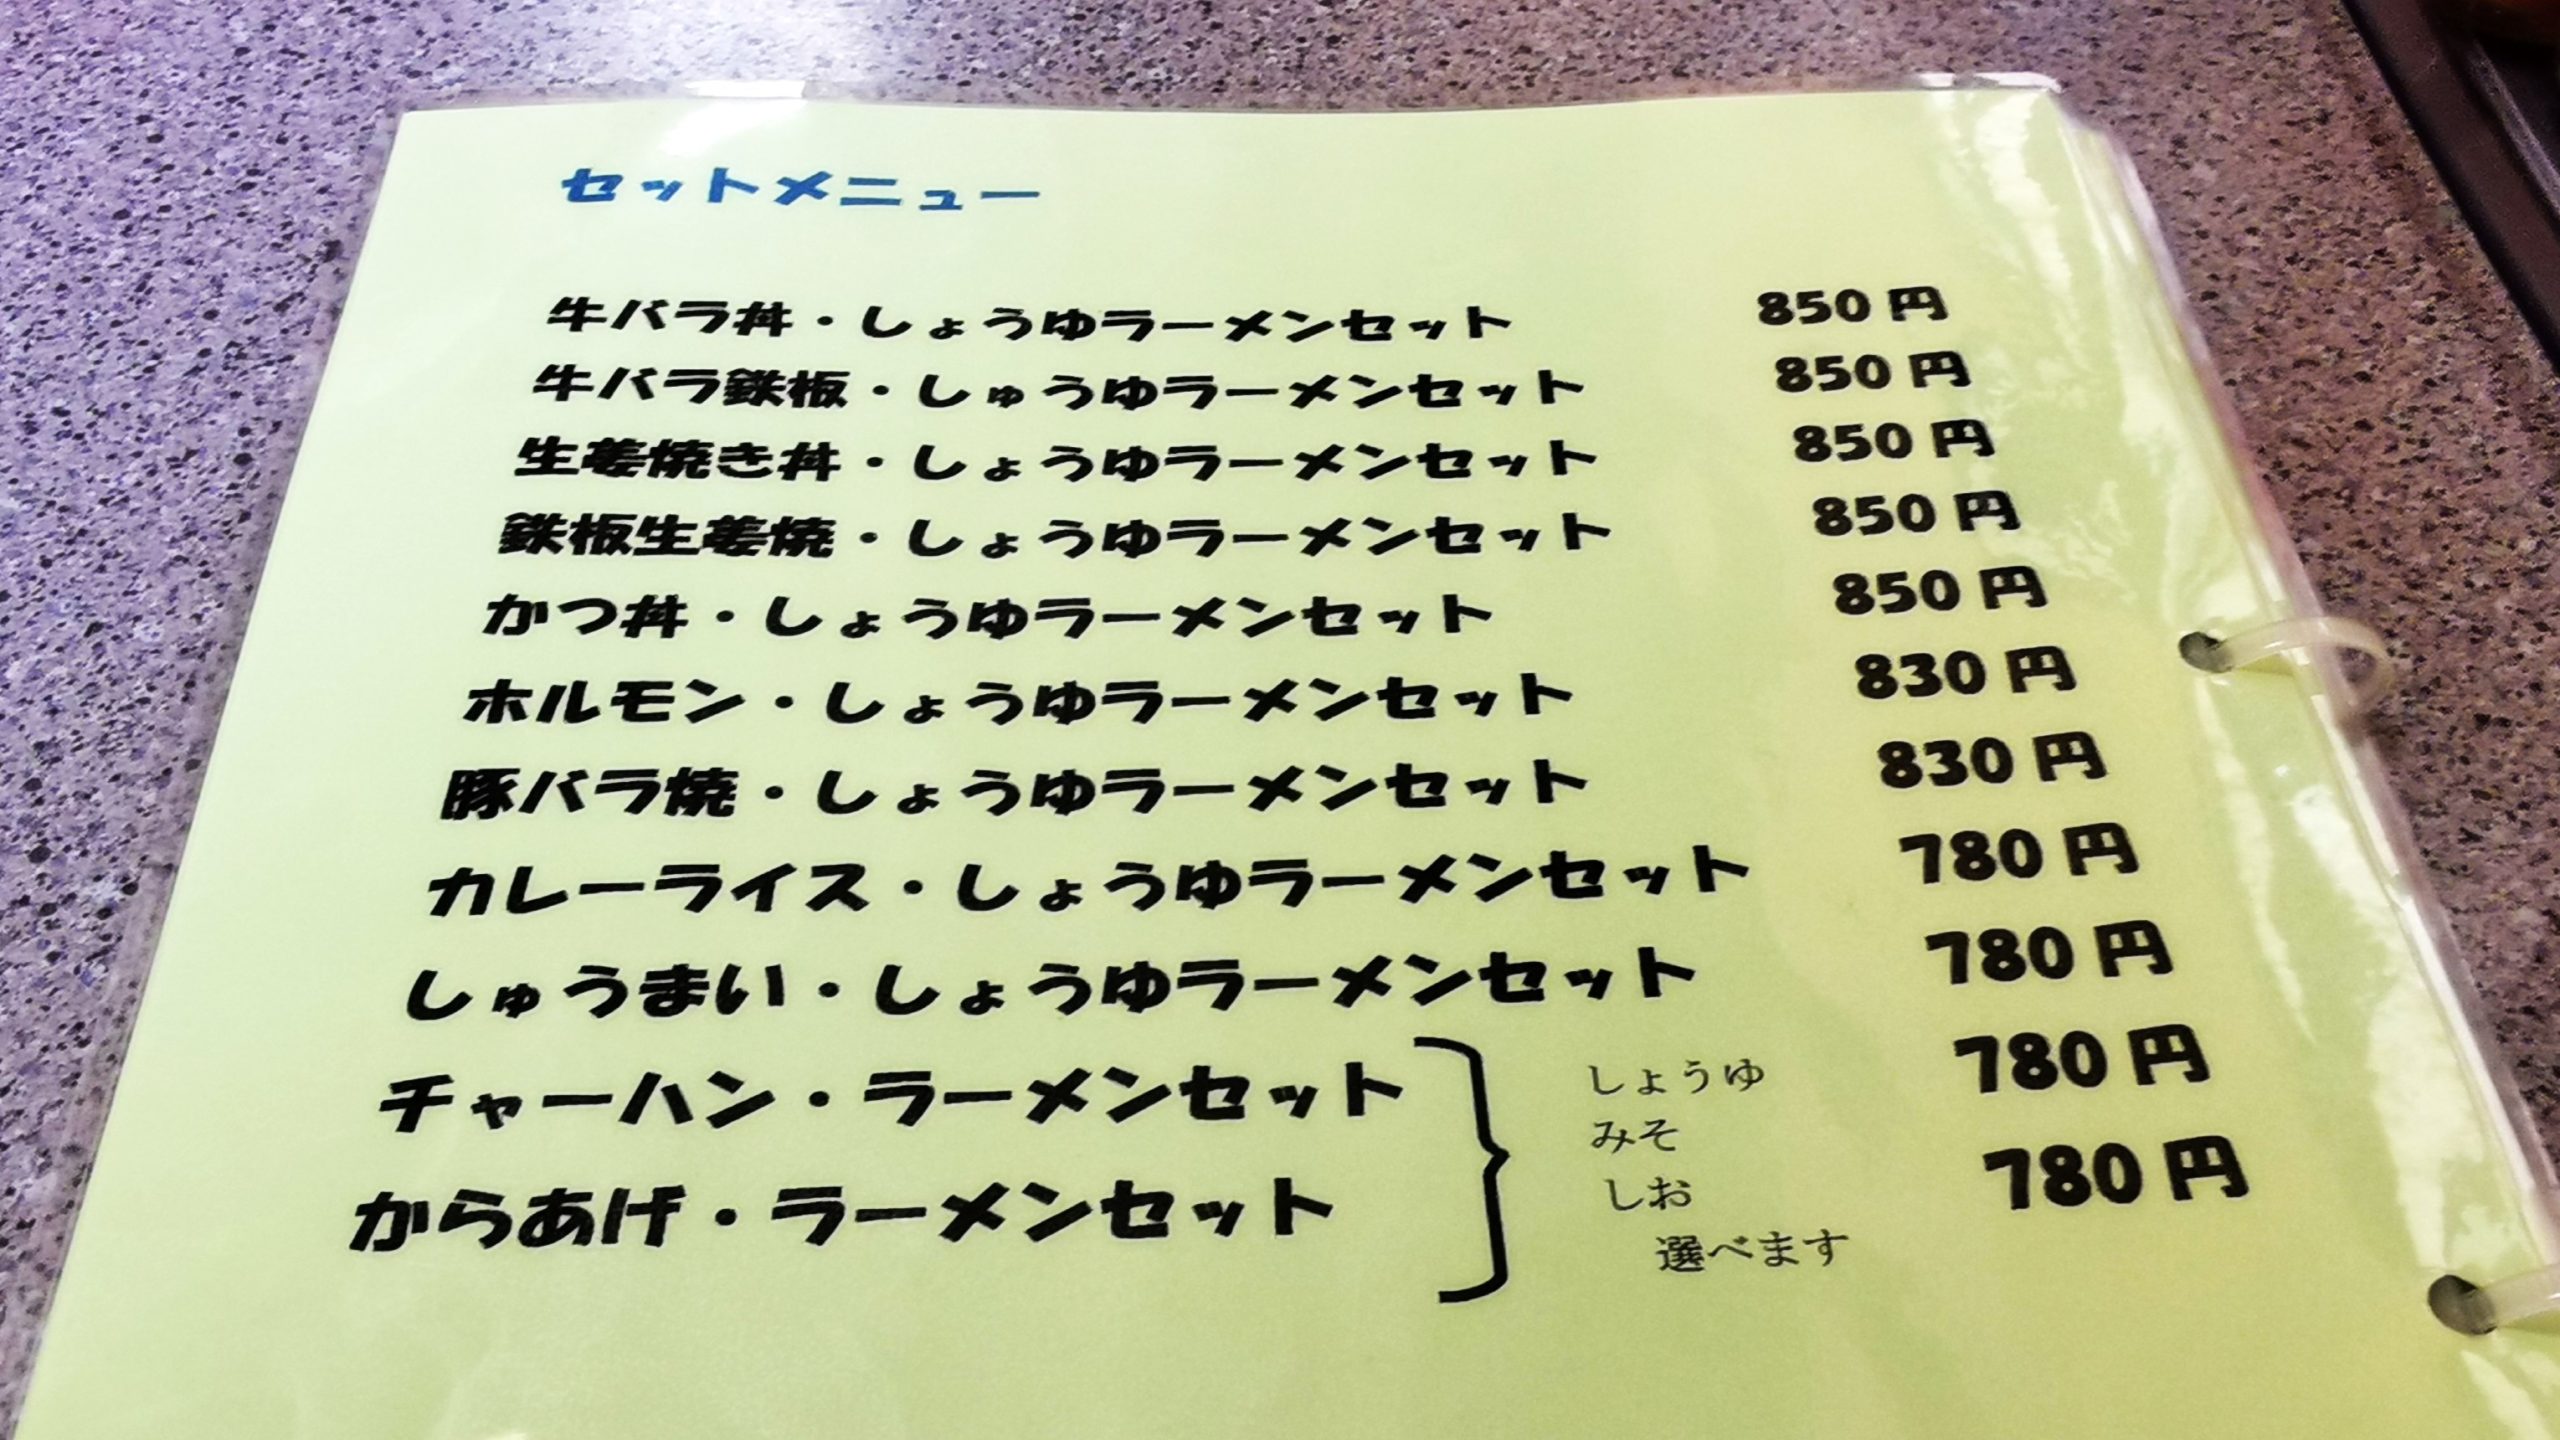 セットメニュー
牛バラ丼・しょうゆラーメンセット 850円
牛バラ鉄板・しゅうゆラーメンセット 850円
生姜焼き丼・しょうゆラーメンセット 850円
鉄板生姜焼・しょうゆラーメンセット 850円
かつ丼・しょうゆラーメンセット 850円
ホルモン・しょうゆラーメンセット 830円
豚バラ焼・しょうゆラーメンセット 830円
カレーライス・しょうゆラーメンセット 780円
しゅうまい・しょうゆラーメンセット 780円
チャーハン・ラーメンセット しょうゆ 780円
みそ
からあげ・ラーメンセット しお 780円
選べます